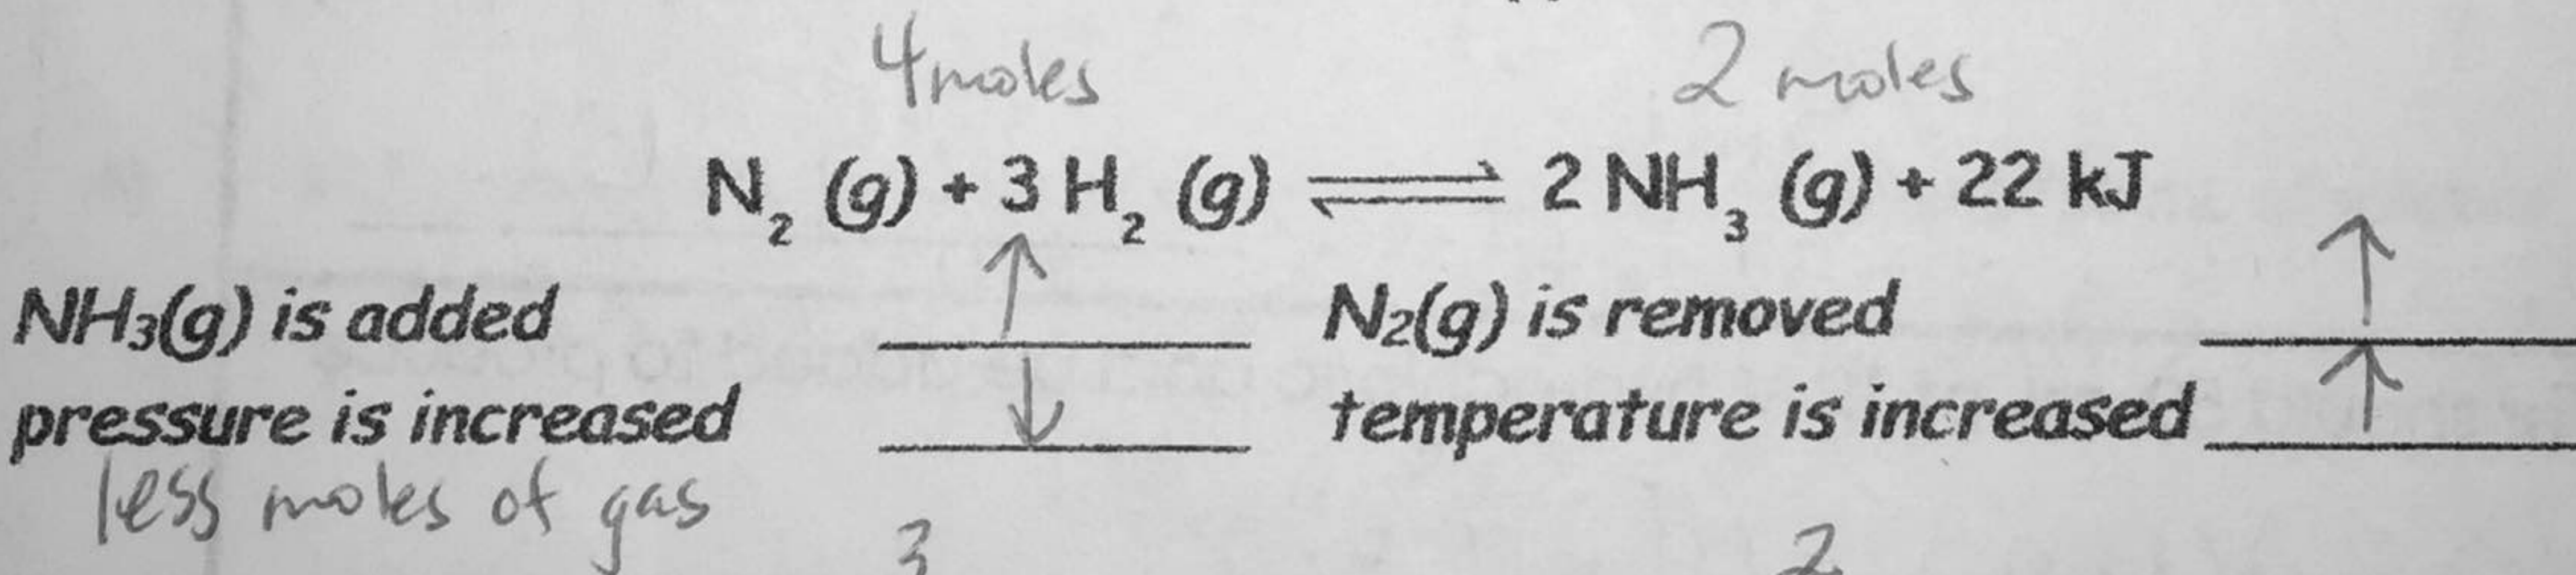 4 moles 2 moles
N₂ (g) + 3 H₂ (g) ⇌ 2 NH₃ (g) + 22 kJ
NH₃(g) is added ↑ N₂(g) is removed ↑
pressure is increased ↓ temperature is increased ↑
less moles of gas
3 2